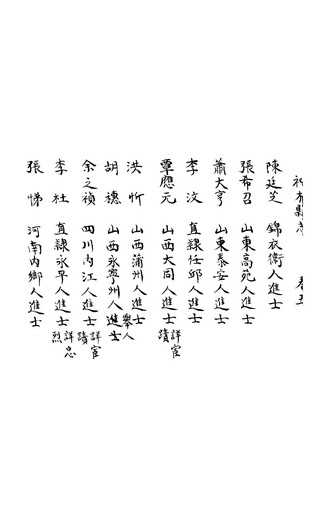 卷五
陳廷芝 錦衣衛人進士
張希召 山東高苑人進士
蕭大亨 山東泰安人進士
李汶 直隸任邱人進士
覃應元 山西大同人進士 詳宦蹟
洪忻 山西蒲州人進士 舉人
胡穗 山西永寧州人進士
余之禎 四川內江人進士 詳宦蹟
李杜 直隸永平人進士 詳忠烈
張悌 河南內鄉人進士